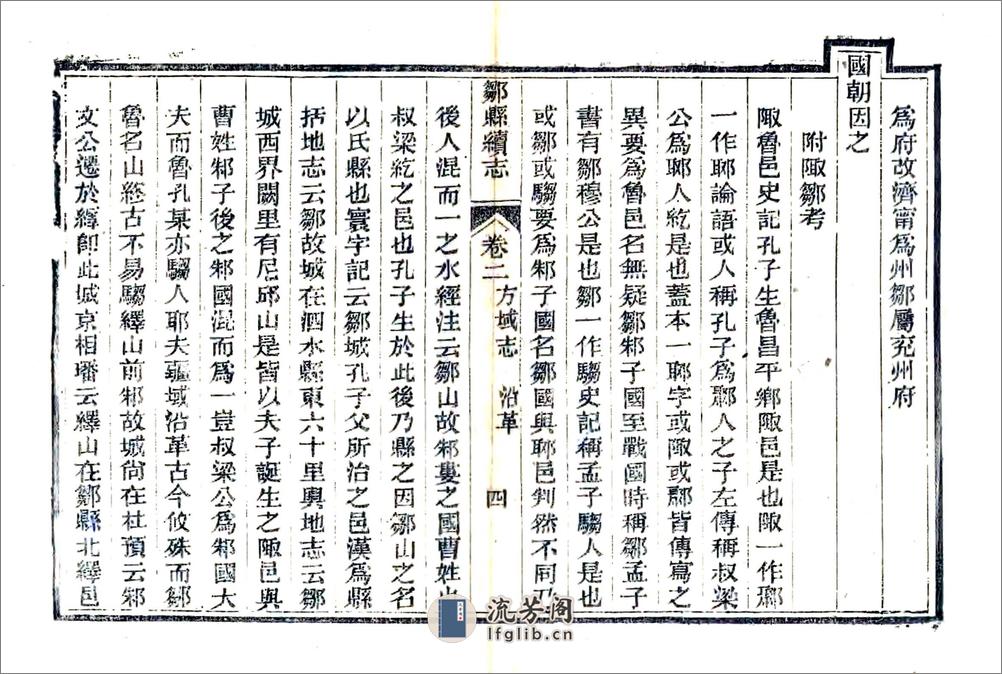 為府改濟甯為州鄒屬兗州府
國朝因之
附陬鄒考
陬魯邑史記孔子生魯昌平鄉陬邑是也陬一作鄹
一作耶論語或人稱孔子為鄹人之子左傳稱叔梁
公為耶人紇是也蓋本一耶字或陬或鄹皆傳寫之
異要為魯邑名無疑鄒邾子國至戰國時稱鄒孟子
書有鄒穆公是也鄒一作騶史記稱孟子騶人是也
或鄒或騶要為邾子國名鄒國與耶邑判然不同乃
鄒縣續志
卷二
方域志
沿革
四
後人混而一之水經注云鄒山故邾婁之國曹姓也
叔梁紇之邑也孔子生於此後乃縣之因鄒山之名
以氏縣也寰宇記云鄒城孔子父所治之邑漢為縣
括地志云鄒故城在泗水縣東六十里輿地志云鄒
城西界闕里有尼邱山是皆以夫子誕生之陬邑與
曹姓邾子後之邾國混而為一豈叔梁公為邾國大
夫而魯孔某亦騶人耶夫疆域沿革古今攸殊而鄒
魯名山終古不易騶繹山前邾故城尚在杜預云邾
文公遷於繹即此城京相璠云繹山在鄒縣北繹邑
流芳阁
lfglib.cn